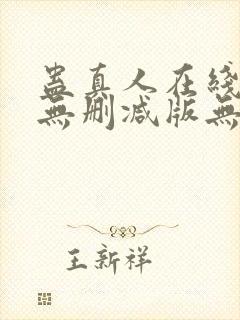 蠱真人在綫
無删减版無
王新祥